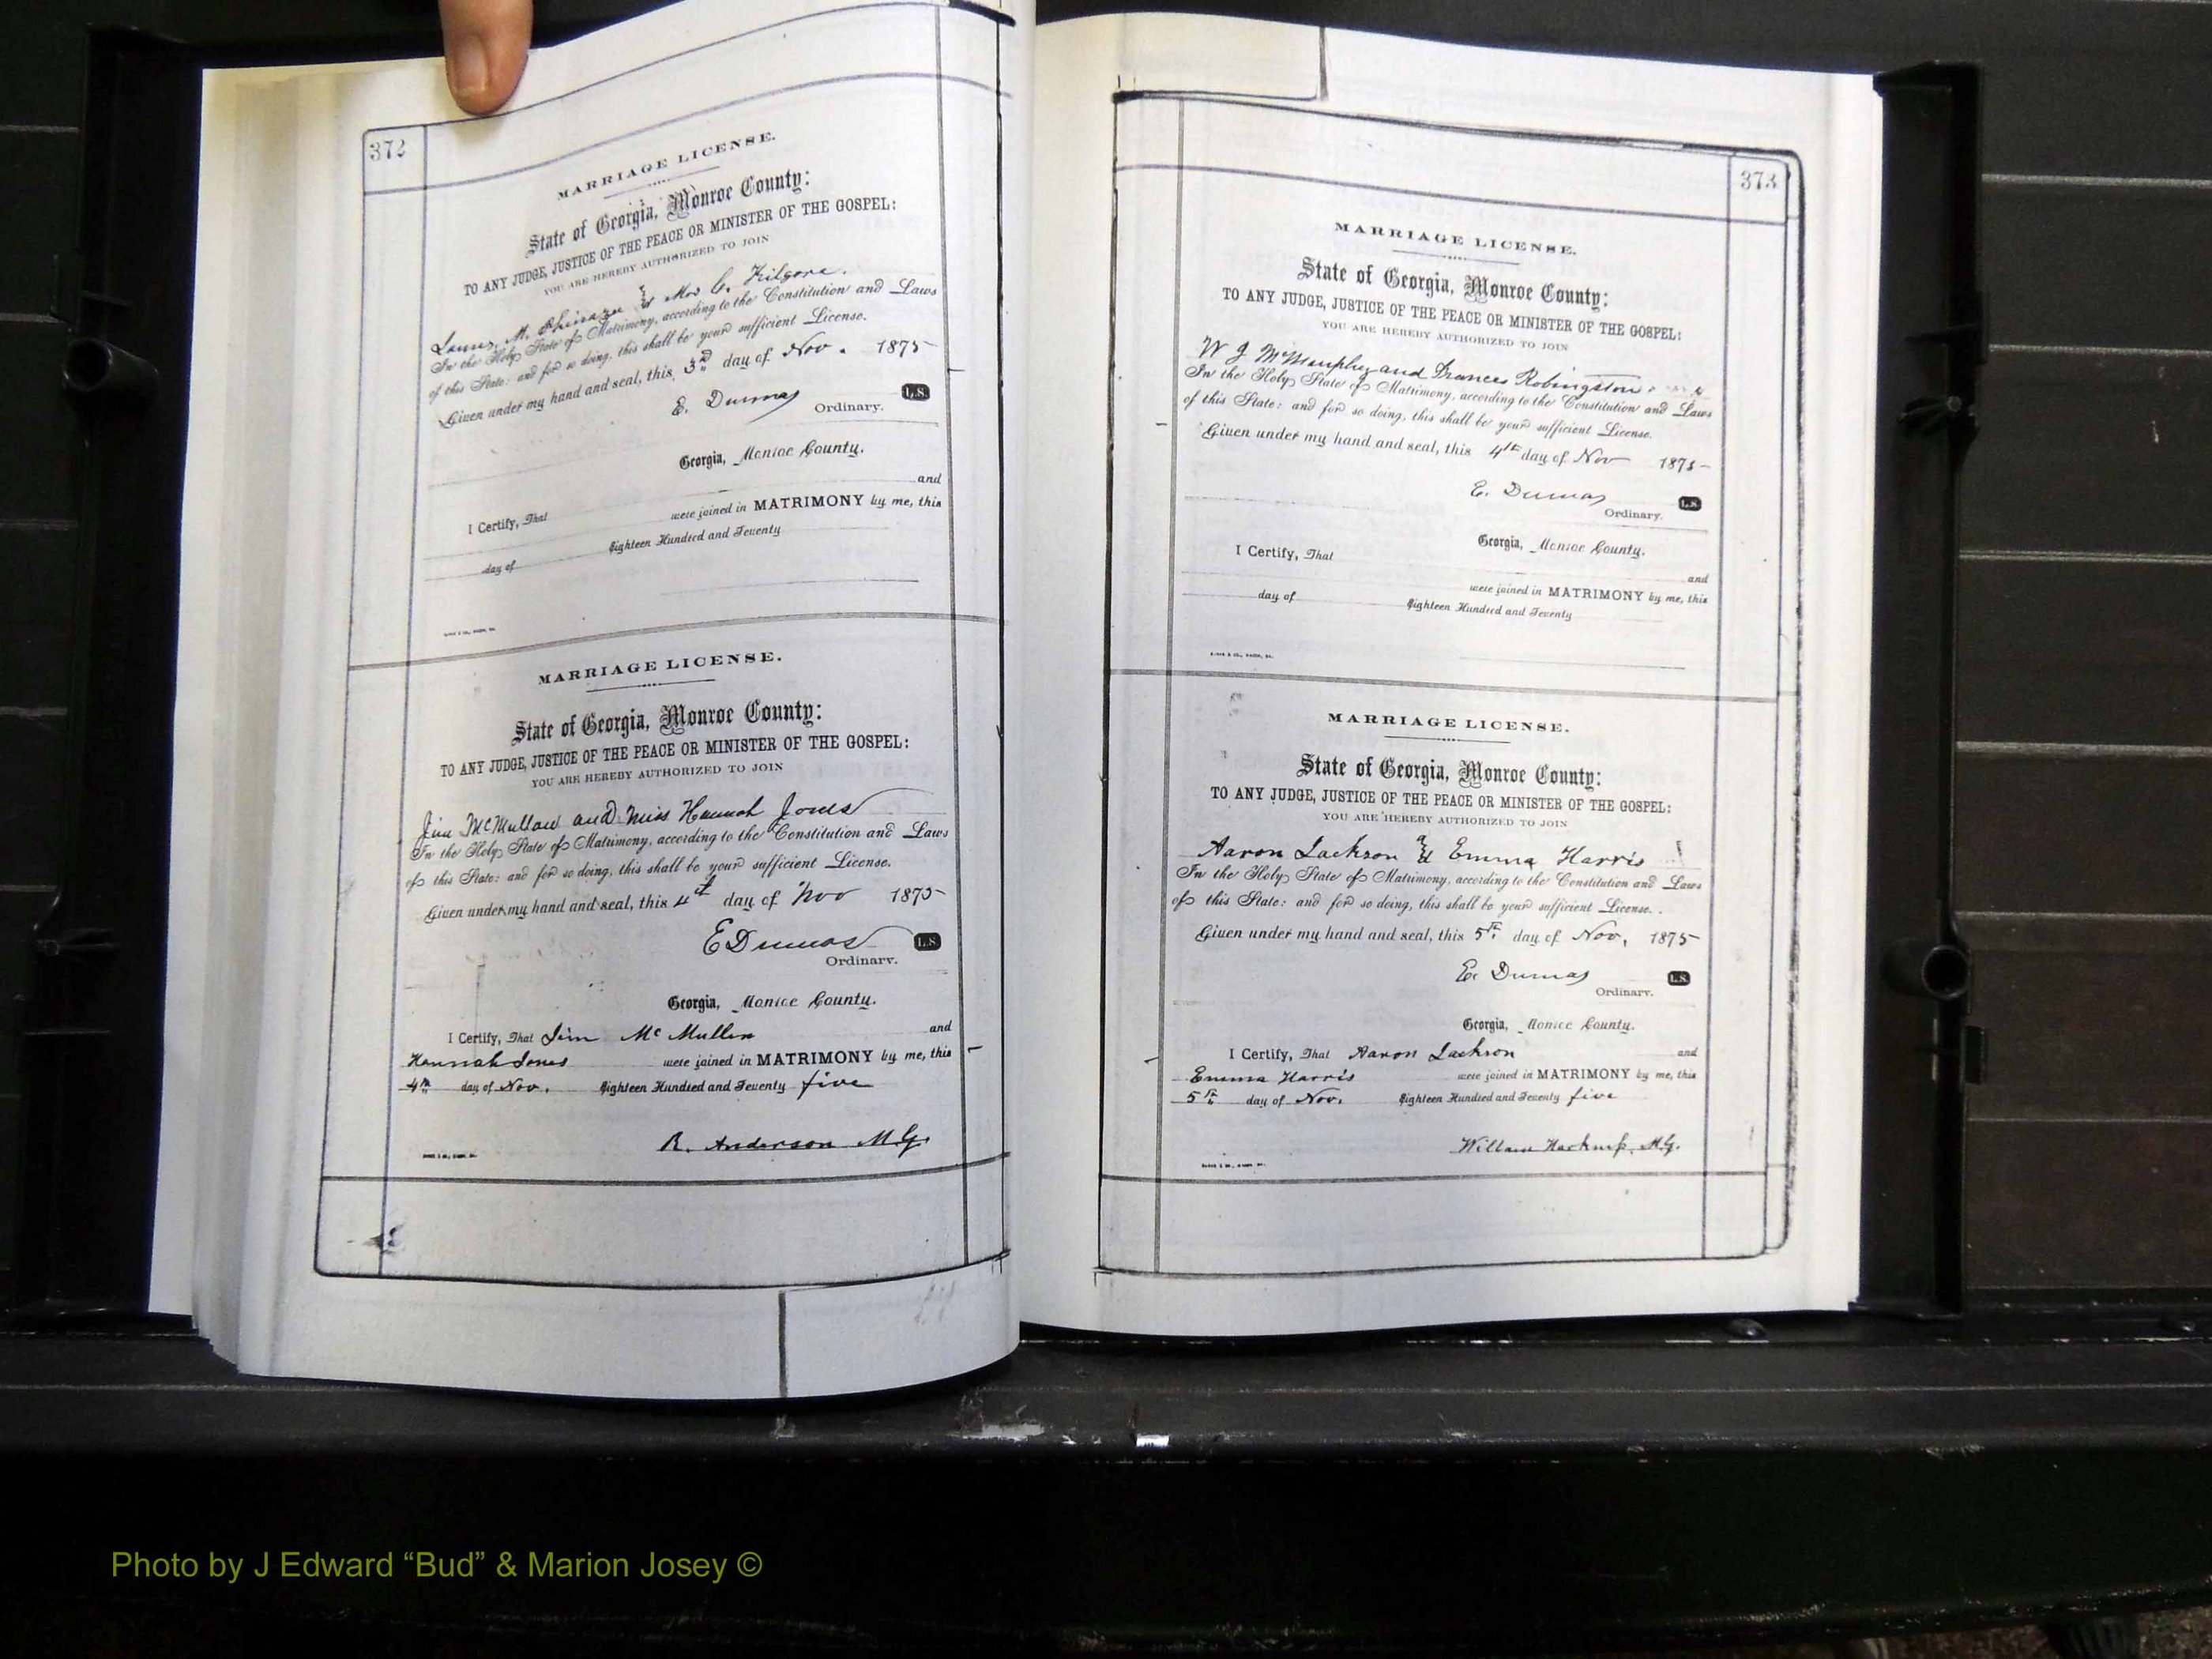 372
MARRIAGE LICENSE.
State of Georgia, Monroe County:
TO ANY JUDGE, JUSTICE OF THE PEACE OR MINISTER OF THE GOSPEL:
YOU ARE HEREBY AUTHORIZED TO JOIN
M. & Mrs C. Kilgore.
In the Holy State of Matrimony, according to the Constitution and Laws
of this State: and for so doing, this shall be your sufficient License.
Given under my hand and seal, this 3rd day of Nov. 1875
E. Dumas L.S.
Ordinary.
Georgia, Monroe County.
I Certify, That and
were joined in MATRIMONY by me, this
day of Eighteen Hundred and Seventy
MARRIAGE LICENSE.
State of Georgia, Monroe County:
TO ANY JUDGE, JUSTICE OF THE PEACE OR MINISTER OF THE GOSPEL:
YOU ARE HEREBY AUTHORIZED TO JOIN
Jim McMullan and Miss Hannah Jones
In the Holy State of Matrimony, according to the Constitution and Laws
of this State: and for so doing, this shall be your sufficient License.
Given under my hand and seal, this 4th day of Nov 1875
E Dumas L.S.
Ordinary.
Georgia, Monroe County.
I Certify, That Jim McMullen and
Hannah Jones were joined in MATRIMONY by me, this
4th day of Nov. Eighteen Hundred and Seventy five
R. Anderson M.G.
373
MARRIAGE LICENSE.
State of Georgia, Monroe County:
TO ANY JUDGE, JUSTICE OF THE PEACE OR MINISTER OF THE GOSPEL:
YOU ARE HEREBY AUTHORIZED TO JOIN
W J and Frances Robingston
In the Holy State of Matrimony, according to the Constitution and Laws
of this State: and for so doing, this shall be your sufficient License.
Given under my hand and seal, this 4th day of Nov 1875
E. Dumas L.S.
Ordinary.
Georgia, Monroe County.
I Certify, That
and
were joined in MATRIMONY by me, this
day of Eighteen Hundred and Seventy
MARRIAGE LICENSE.
State of Georgia, Monroe County:
TO ANY JUDGE, JUSTICE OF THE PEACE OR MINISTER OF THE GOSPEL:
YOU ARE HEREBY AUTHORIZED TO JOIN
Aaron Jackson & Emma Harris
In the Holy State of Matrimony, according to the Constitution and Laws
of this State: and for so doing, this shall be your sufficient License.
Given under my hand and seal, this 5th day of Nov, 1875
E. Dumas L.S.
Ordinary.
Georgia, Monroe County.
I Certify, That Aaron Jackson and
Emma Harris were joined in MATRIMONY by me, this
5th day of Nov. Eighteen Hundred and Seventy five
M.G.
Photo by J Edward “Bud” & Marion Josey ©